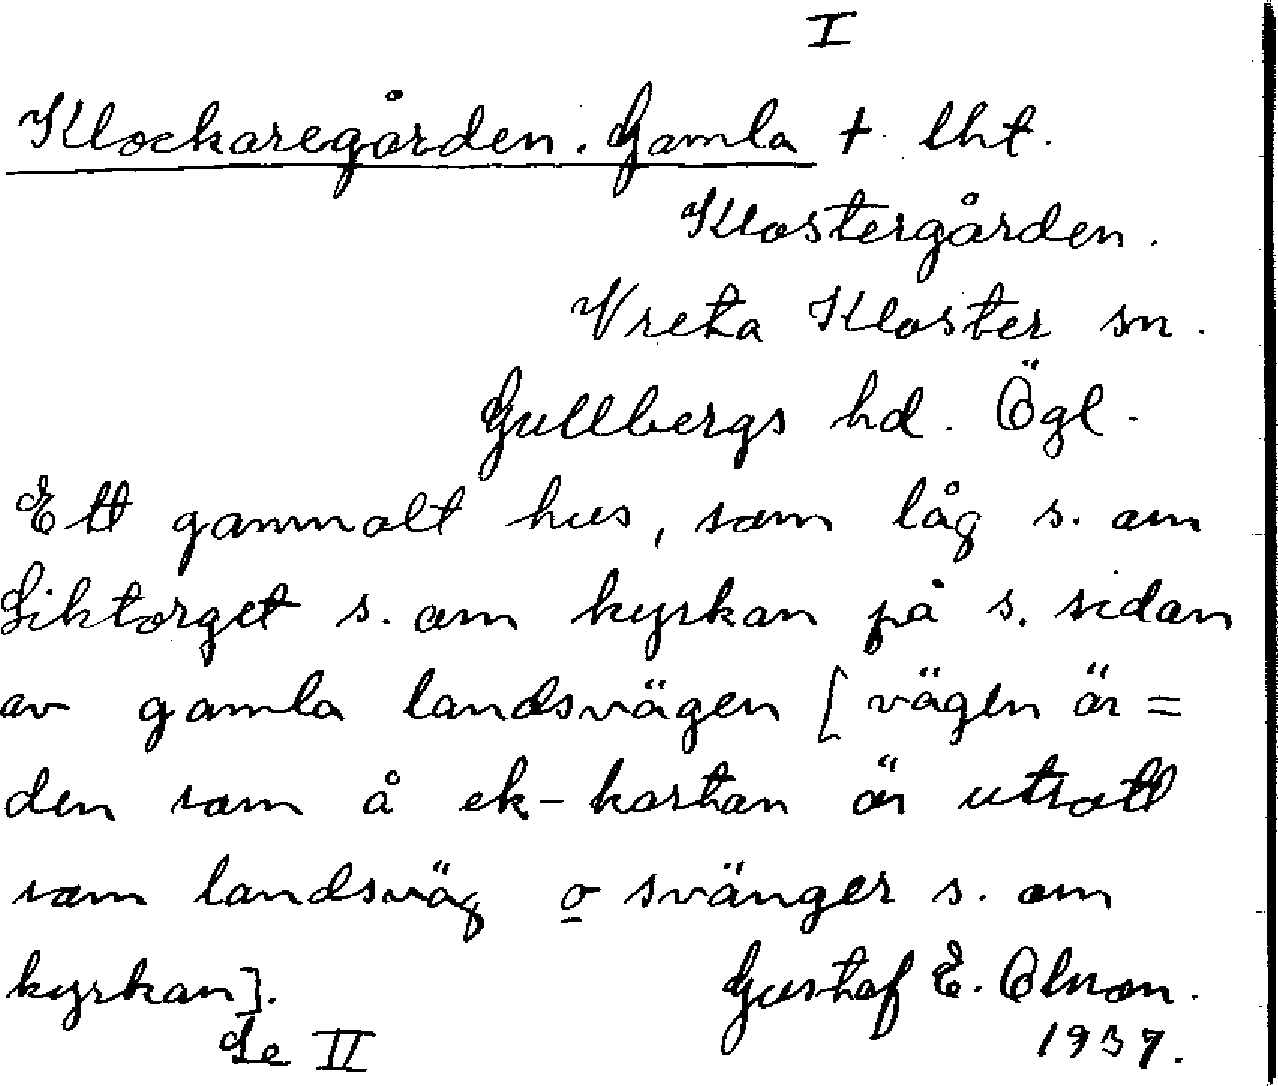 I
Klockaregården. Gamla † lht.
Klostergården.
Vreta Kloster sn.
Gullbergs hd. Ögl.
Ett gammalt hus, som låg s. om
Liktorget s. om kyrkan på s. sidan
av gamla landsvägen [vägen är =
den som å ek-kartan är utsatt
som landsväg o svänger s. om
kyrkan].
Gustaf E. Olsson.
Se II
1937.